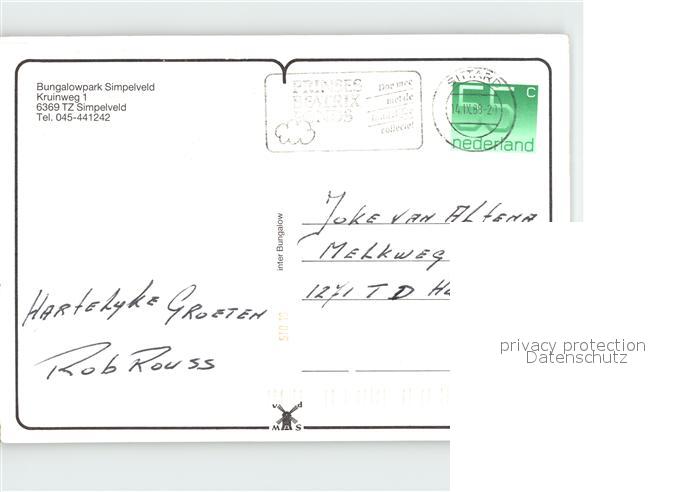 Bungalowpark Simpelveld
Kruinweg 1
6369 TZ Simpelveld
Tel. 045-441242
PRINSES
BEATRIX
FONDS
Doe mee
met de
collecte!
SITTARD
55 c
nederland
inter Bungalow
Joke van Altena
Melkweg
1271 TD Hu
Hartelyke Groeten
Rob Rouss
v d P
W S
privacy protection
Datenschutz